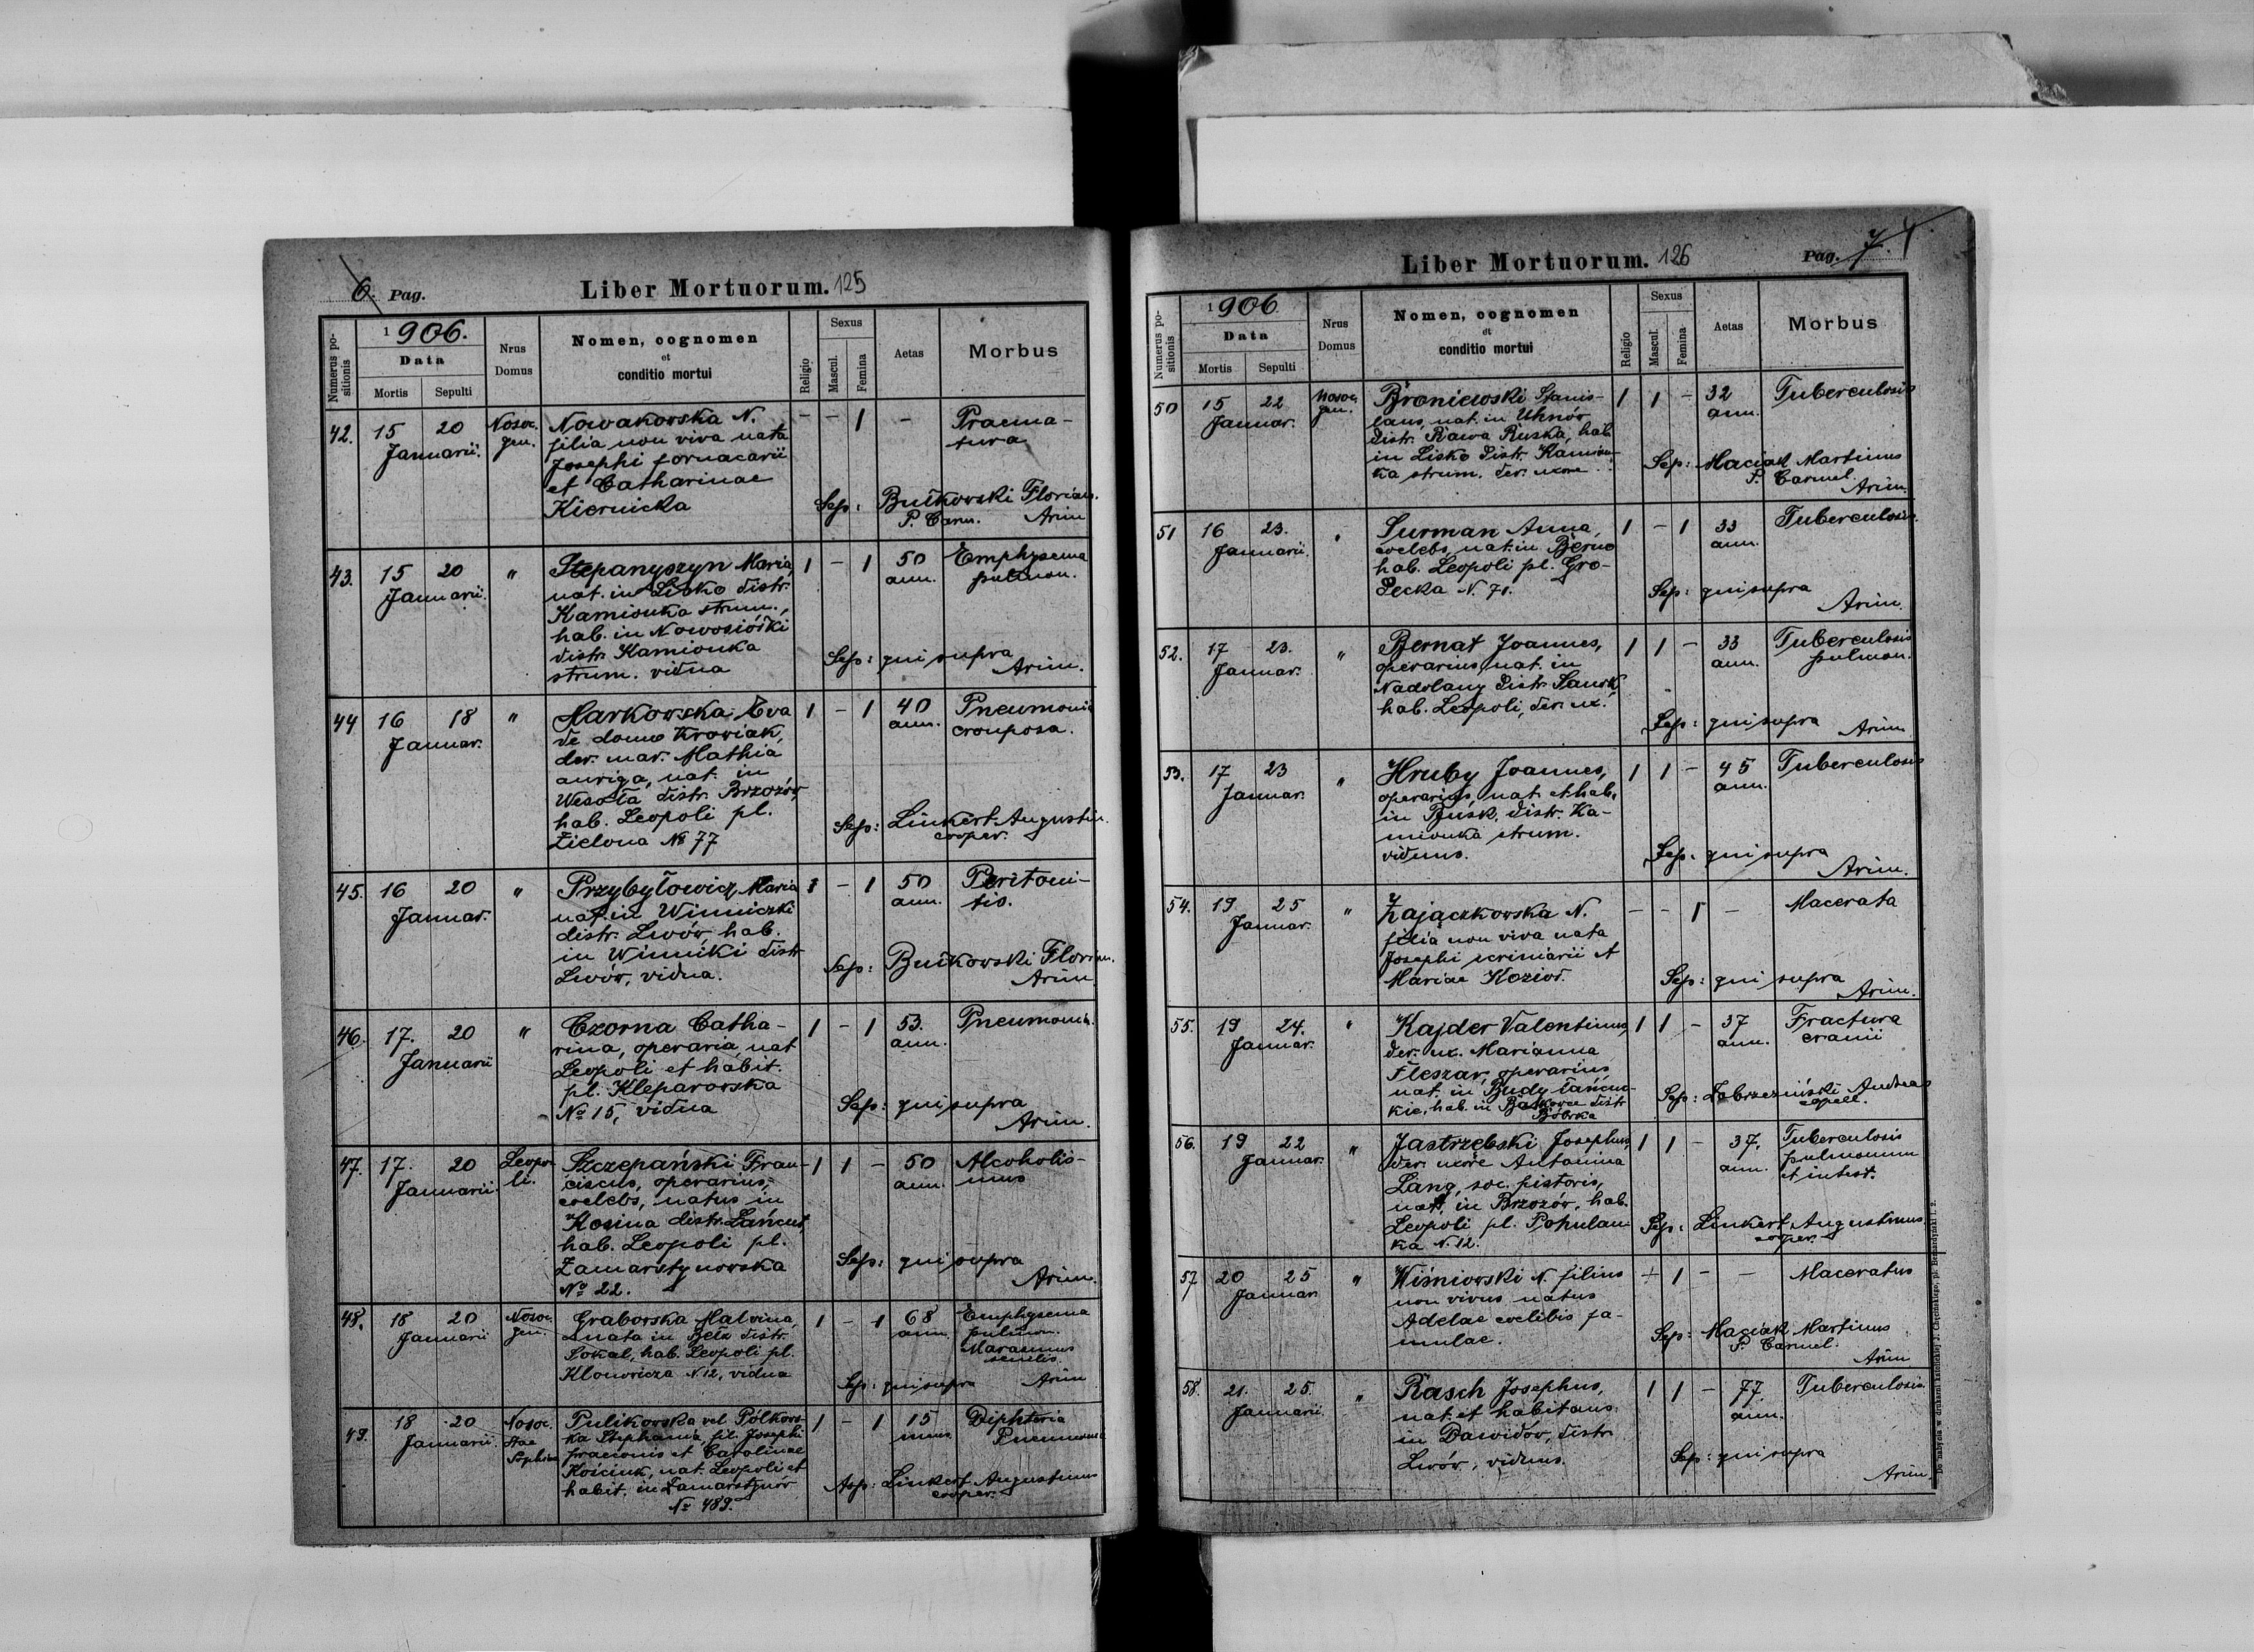 6. Pag.
Liber Mortuorum. 125
Numerus positionis
1906.
Data
Mortis Sepulti
Nrus Domus
Nomen, cognomen
et
conditio mortui
Religio
Sexus
Mascul. Femina
Aetas
Morbus
42. 15 20 Nosoc. Nowakowska N. – – 1 – Praema-
Januarii. gen. filia non viva nata tura
Josephi fornacarii
et Catharinae
Kiernicka Sep: Bułkowski Florian.
P. Carm. Arim
43. 15 20 " Stepanyszyn Maria, 1 – 1 50 Emphysema
Januarii. nat. in Lisko distr. ann. pulmon.
Kamionka strum.,
hab. in Nowosiółki
distr. Kamionka Sep: qui supra
strum. vidua Arim.
44 16 18 " Markowska Eva 1 – 1 40 Pneumonia
Januar. de domo Krowiak, ann. crouposa.
der. mar. Mathia
auriga, nat. in
Wesoła distr. Brzozów,
hab. Leopoli pl. Sep: Linkert Augustin.
Zielona № 77 cooper.
45. 16 20 " Przybyłowicz Maria 1 – 1 50 Peritoni-
Januar. nat. in Winniczki ann. tis.
distr. Lwów, hab.
in Winniki distr. Sep: Bułkowski Florian.
Lwów, vidua. Arim
46. 17. 20 " Czorna Catha- 1 – 1 53. Pneumonia.
Januarii rina, operaria, nat ann.
Leopoli et habit.
pl. Kleparowska Sep: qui supra
№ 15, vidua Arim.
47. 17. 20 Leopo- Szczepański Fran- 1 1 – 50 Alcoholis-
Januarii. li. ciscus, operarius, ann. mus
coelebs, natus in
Kosina distr. Łańcut,
hab. Leopoli pl. Sep: qui supra
Zamarstynowska Arim.
№ 22.
48. 18 20 Nosoc. Grabowska Malvina, 1 – 1 68 Emphysema
Januarii gen. nata in Bełz distr. ann. pulmon.
Sokal, hab. Leopoli pl. Marasmus senilis.
Klonowicza N. 12, vidua Sep: qui supra Arim
49. 18 20 Nosoc. Pulikowska vel Półkows- 1 – 1 15 Diphteria
Januarii. Stae ka Stephania, fil. Josephi mens. Pneumonia
Sophiae
et Carolinae
Kościuk, nat. Leopoli et
habit. in Zamarstynów Sep: Linkert Augustinus
№ 489. cooper.
Liber Mortuorum. 126
Pag. 7.
Numerus positionis
1906
Data
Mortis Sepulti
Nrus Domus
Nomen, cognomen
et
conditio mortui
Religio
Sexus
Mascul. Femina
Aetas
Morbus
50 15 22 Nosoc. Broniewski Stanis- 1 1 – 32 Tuberculosis
Januar. gen. laus, nat. in Uhnów ann.
distr. Rawa Ruska, hab.
in Lisko distr. Kamion- Sep: Maciak Martinus
ka strum. der. uxore P. Carmel.
Arim.
51 16 23. " Surman Anna, 1 – 1 33 Tuberculosis.
Januarii. coelebs, nat. in Berno ann.
hab. Leopoli pl. Gro-
decka N. 71. Sep: qui supra
Arim.
52. 17 23. " Bernat Joannes, 1 1 – 33 Tuberculosis
Januar. operarius, nat. in ann. pulmon.
Nadolany distr. Sanok,
hab. Leopoli, der. ux. Sep: qui supra
Arim
53. 17 23 " Hruby Joannes, 1 1 – 45 Tuberculosis
Januar. operarius, nat. et hab. ann.
in Busk, distr. Ka-
mionka strum.
viduus. Sep: qui supra
Arim.
54. 19 25 " Zajączkowska N. – – 1 – Macerata
Januar. filia non viva nata
Josephi scriniarii et
Mariae Kozioł. Sep: qui supra
Arim.
55. 19 24. " Kajder Valentinus, 1 1 – 37 Fractura
Januar. der. ux. Marianna ann. cranii
Fleszar, operarius,
nat. in Budy łańcuc- Sep: Dobrzeziński Andreas
kie, hab. in distr. capell.
Bóbrka
56. 19 22 " Jastrzębski Josephus, 1 1 – 37. Tuberculosis
Januar. der. uxore Antonina ann. pulmonum
Lang, soc. pistoris, et intest.
nat. in Brzozów, hab.
Leopoli pl. Popułan- Sep: Linkert Augustinus
ka N. 12. cooper.
57 20 25 " Wiśniowski N. filius + 1 – – Maceratus
Januar non vivus natus
Adelae coelibis fa- Sep: Maciak Martinus
mulae. P. Carmel.
Arim
58. 21. 25. " Rasch Josephus, 1 1 – 77 Tuberculosis.
Januarii. nat. et habitans ann.
in Dawidów, distr.
Lwów, viduus. Sep: qui supra
Arim.
Do nabycia w drukarni katolickiej J. Chęcińskiego, pl. Bernardyński l. 2.